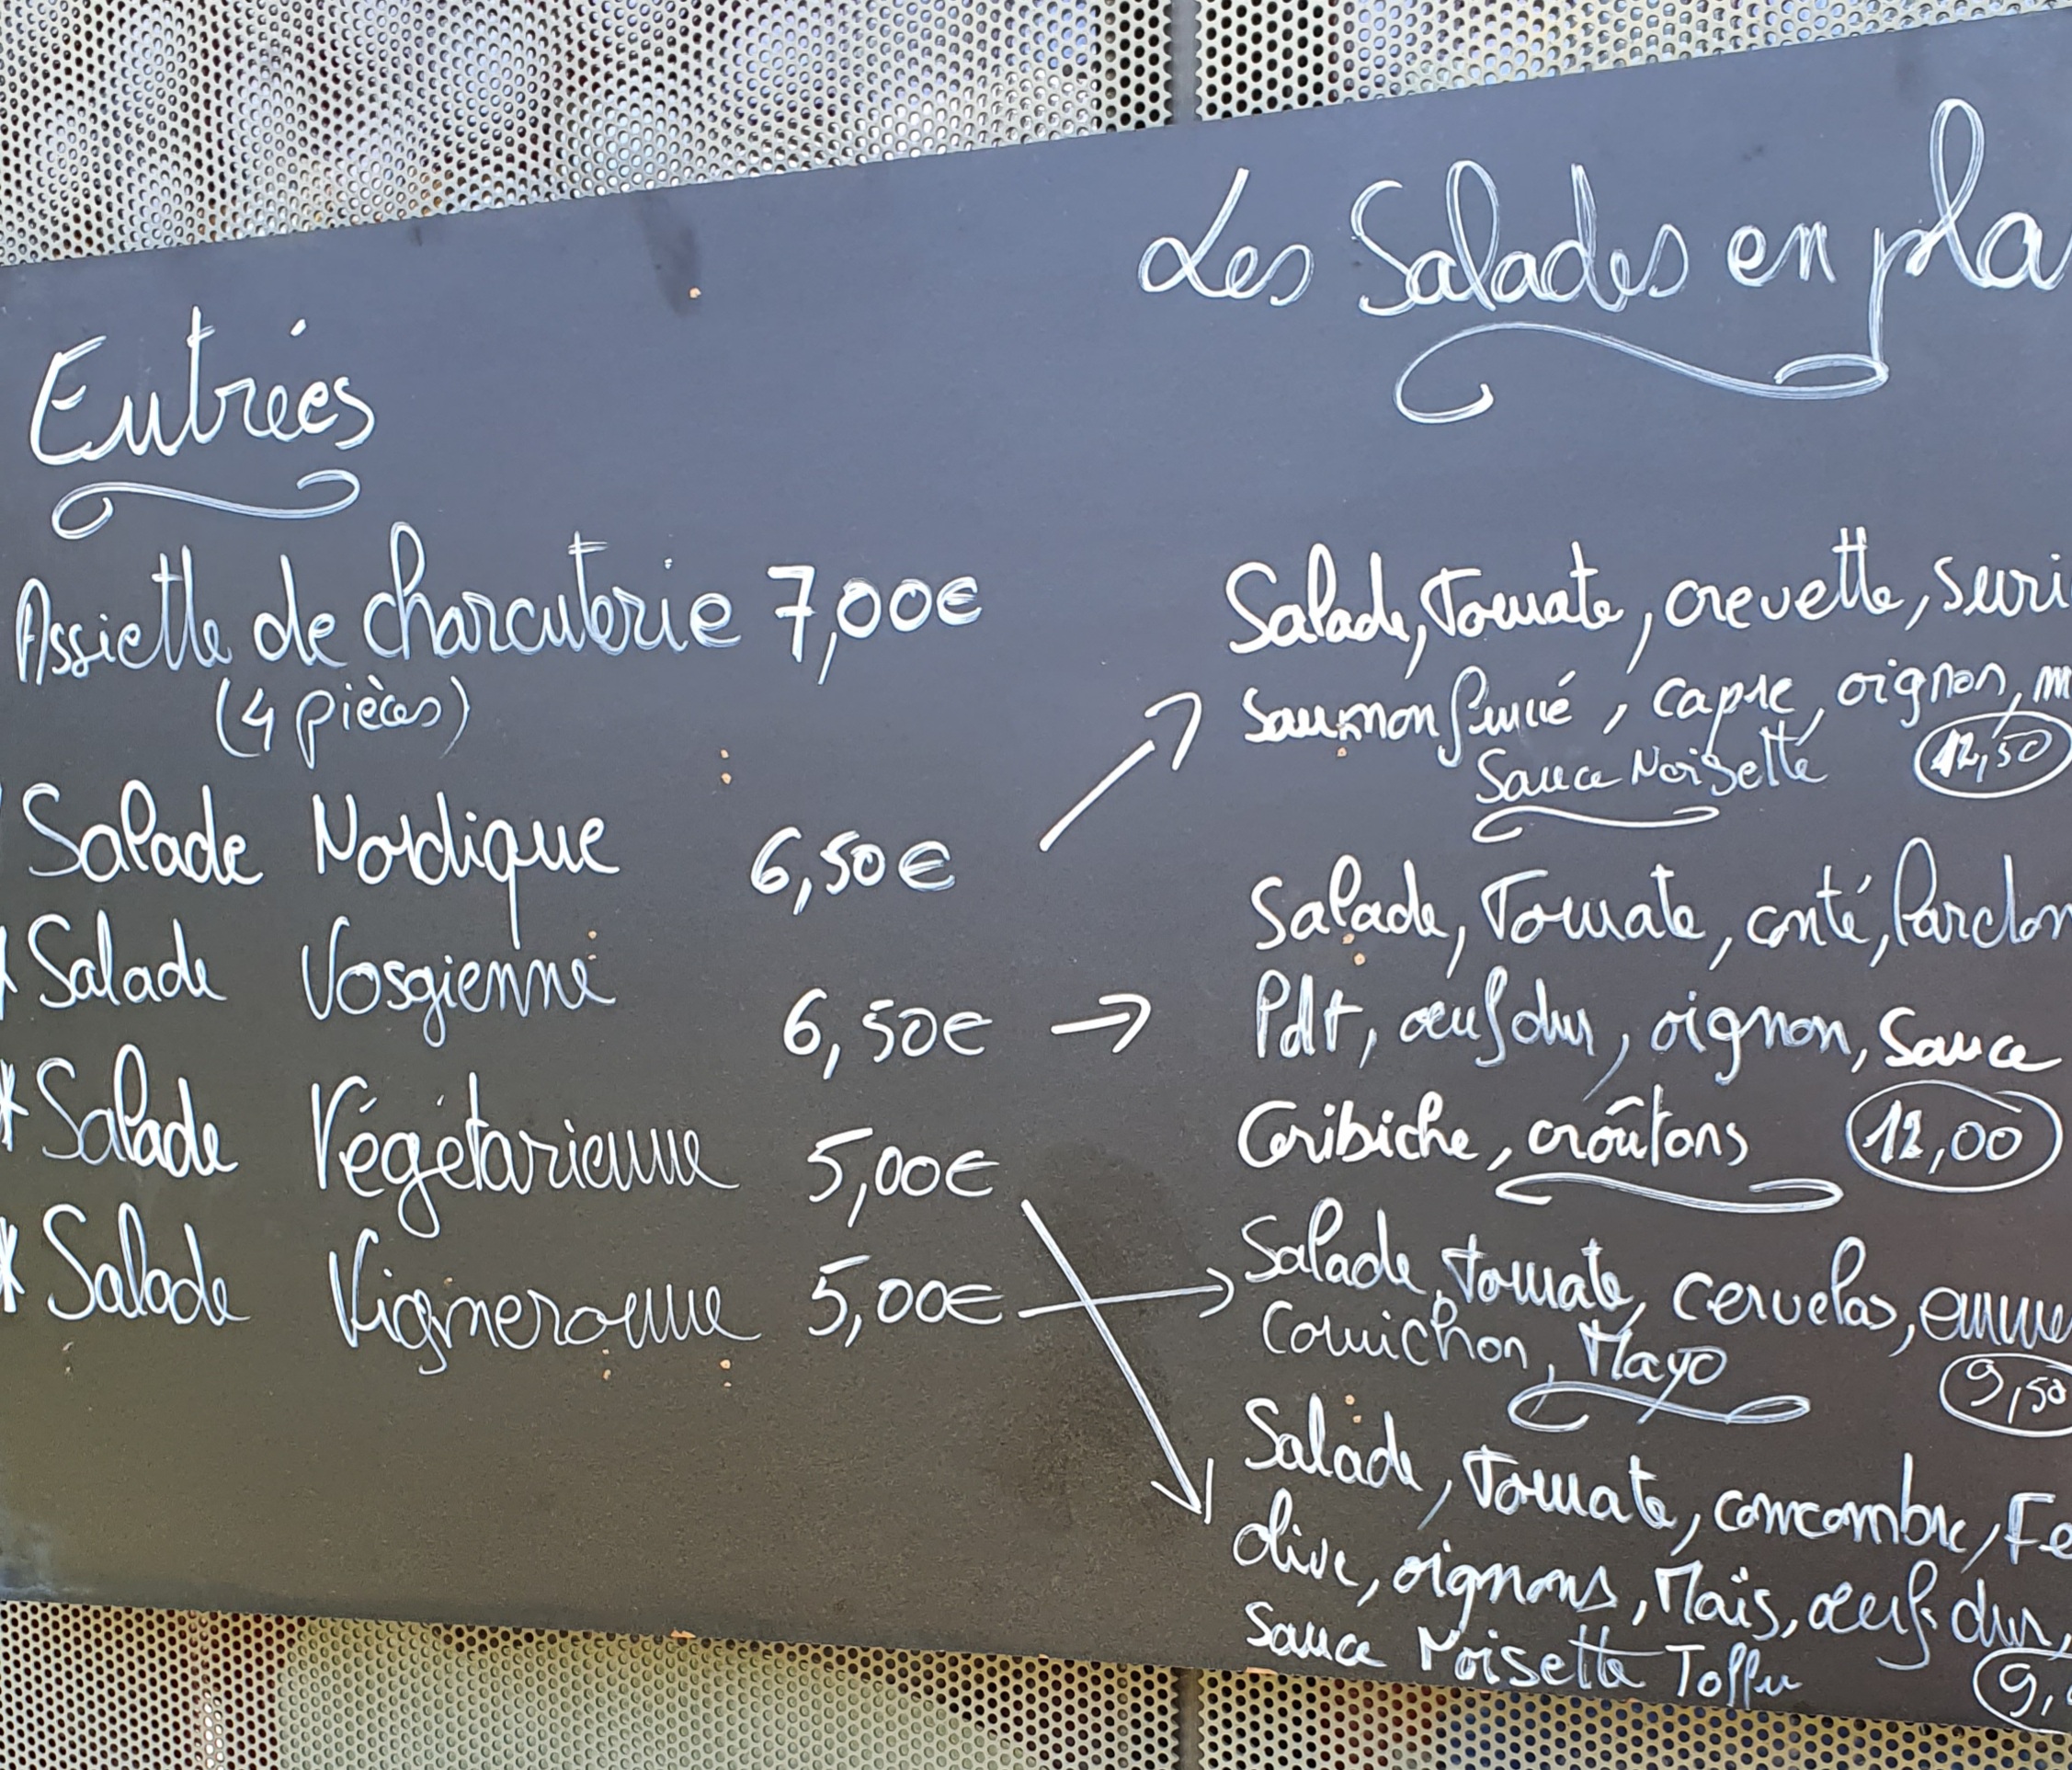 Entrées
Assiette de charcuterie 7,00€
(4 pièces)
Salade Nordique 6,50€
* Salade Vosgienne 6,50€
* Salade Végétarienne 5,00€
* Salade Vigneronne 5,00€
Les Salades en pla
Salade, Tomate, crevette, suri
Saumon fumé, capre, oignon, m
Sauce Noisette 12,50
Salade, Tomate, comté, lardon
Pdt, œuf dur, oignon, Sauce
Gribiche, croûtons 12,00
Salade, tomate, cervelas, emme
Cornichon, Mayo 9,50
Salade, Tomate, concombre, Fe
olive, oignons, Maïs, œuf dur,
Sauce Noisette Toffu 9,